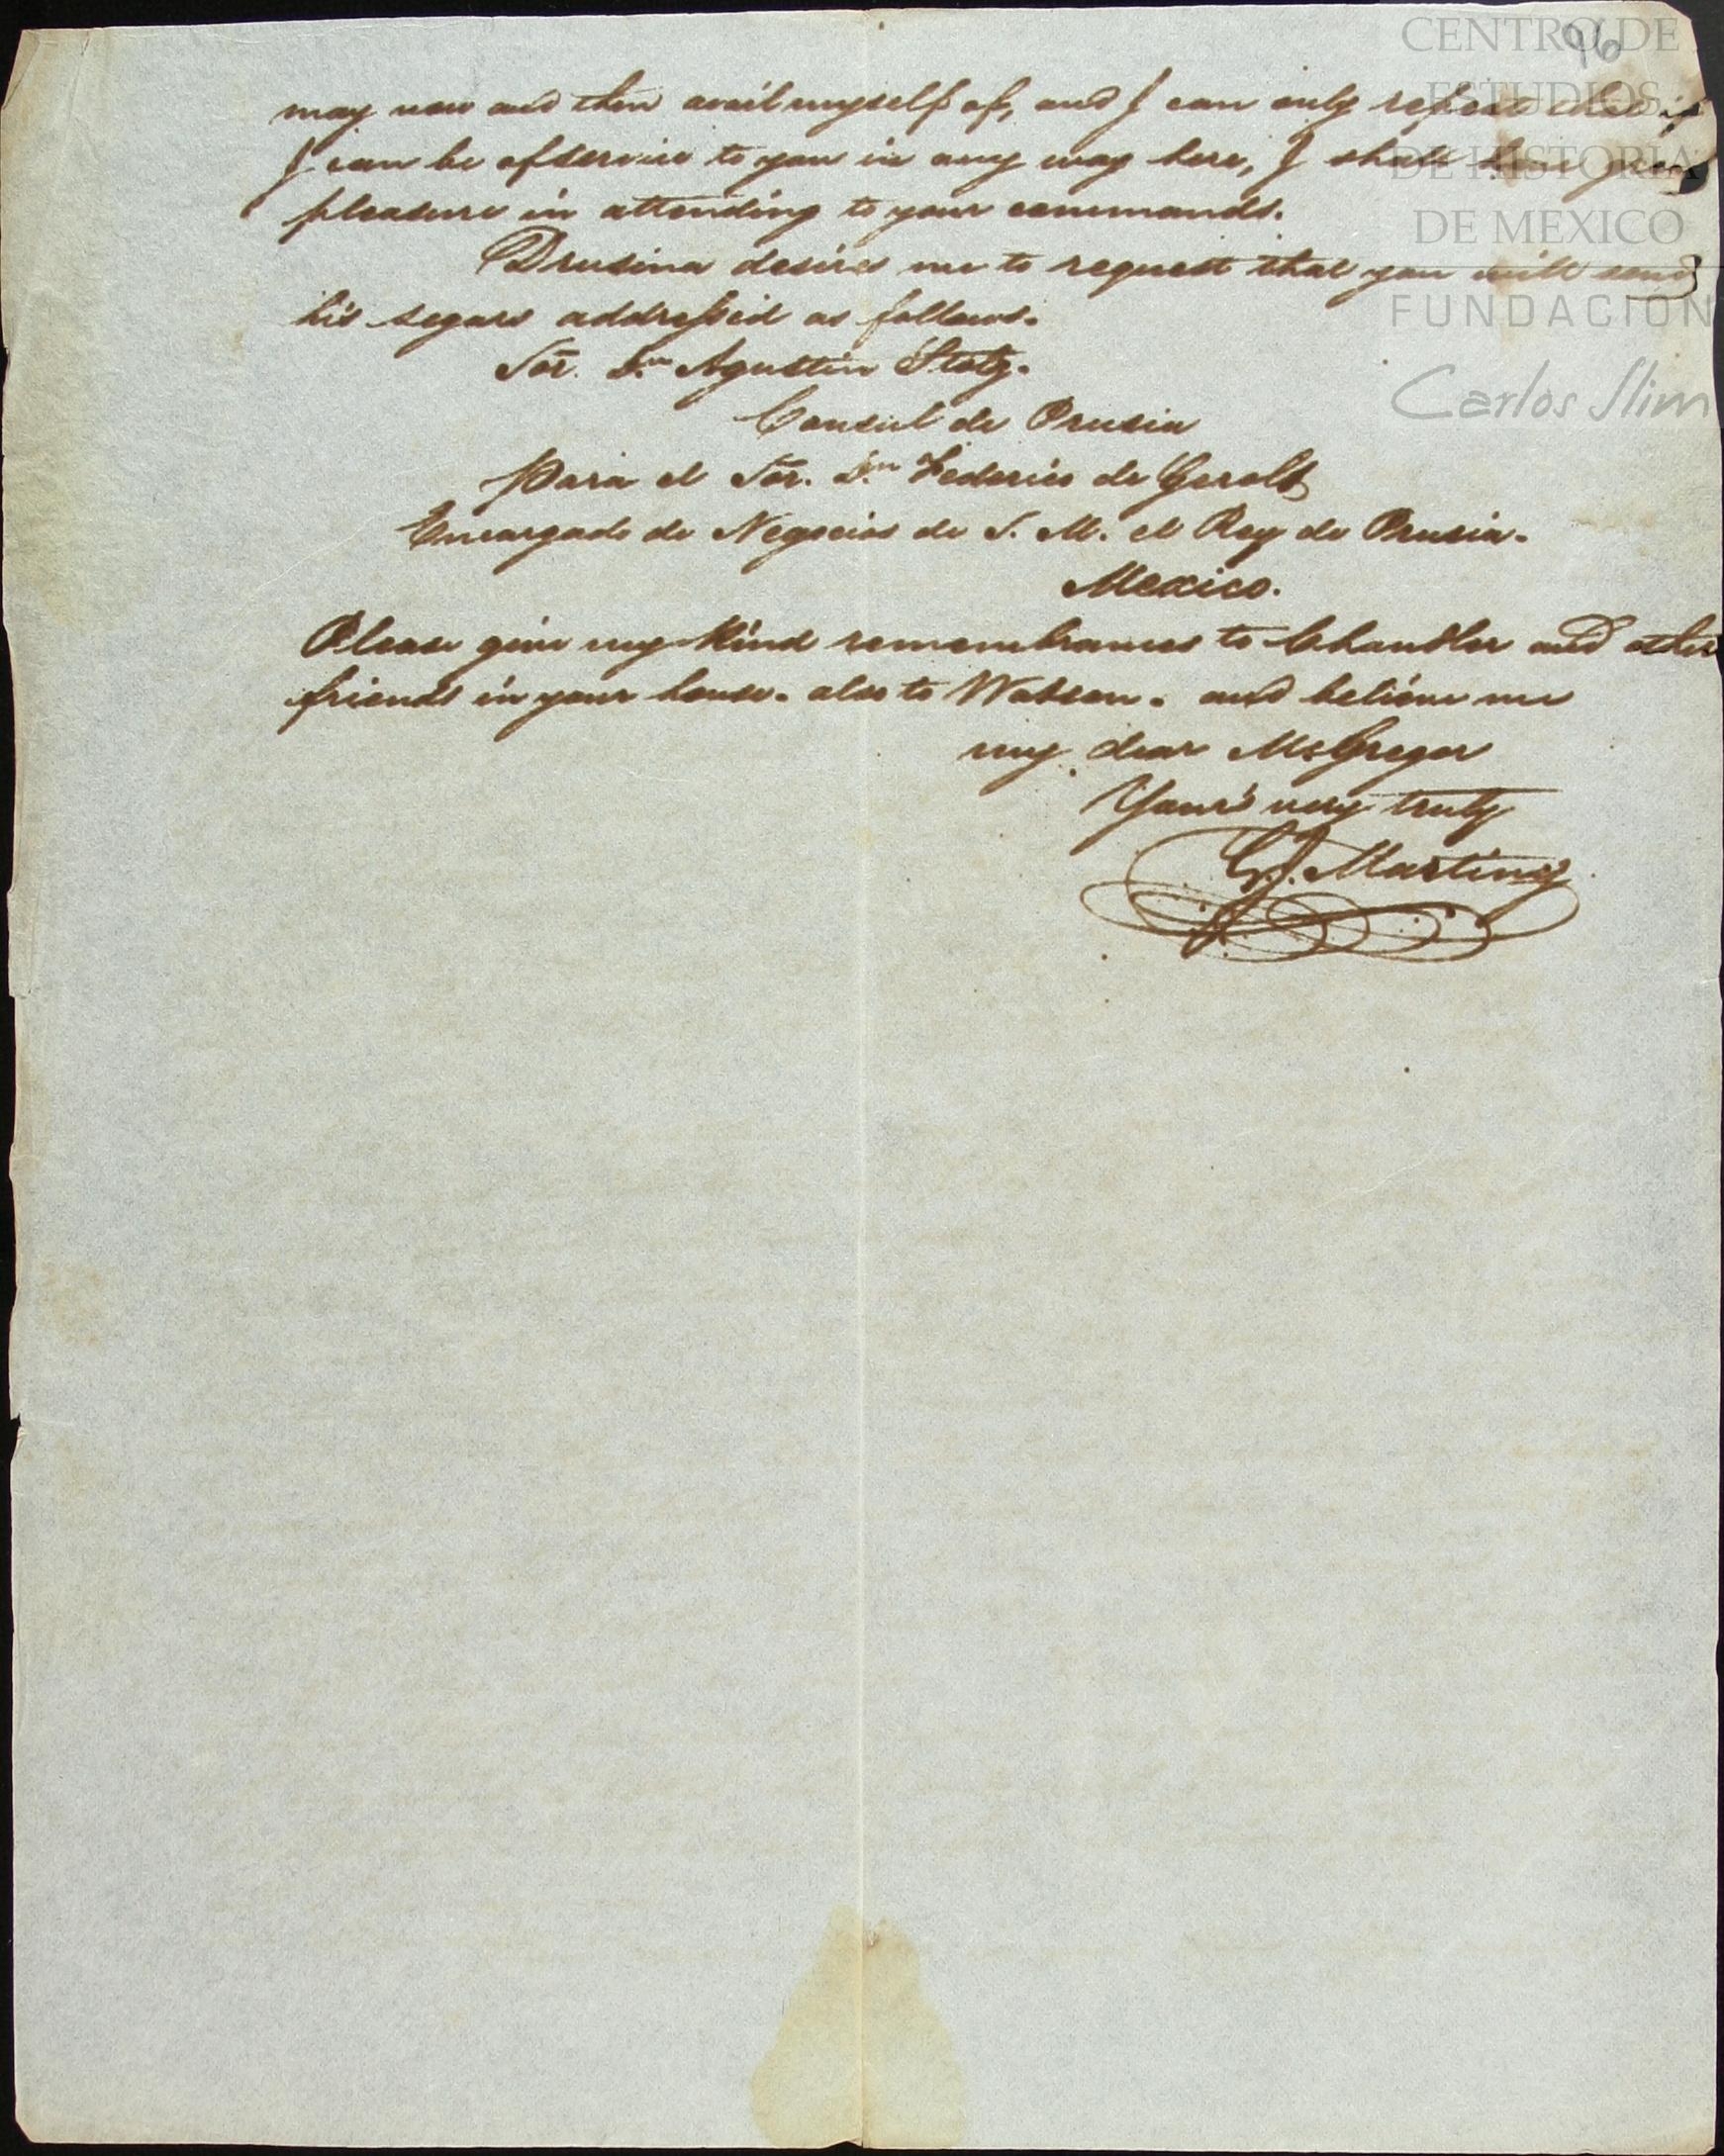 96
CENTRO DE
ESTUDIOS
DE HISTORIA
DE MEXICO
FUNDACION
Carlos Slim
may now and then avail myself of, and I can only repeat that if
I can be of service to you in any way here, I shall have great
pleasure in attending to your commands.
Drusina desires me to request that you will send
his segars addressed as follows.
Sor. Dn Agustin Stolz.
Consul de Prusia
Para el Sor. Dn Federico de Gerolt
Encargado de Negocios de S. M. el Rey de Prusia.
Mexico.
Please give my kind remembrances to Chandler and other
friends in your house. also to Watson. and believe me
my dear McGregor
Your's very truly
Martinez